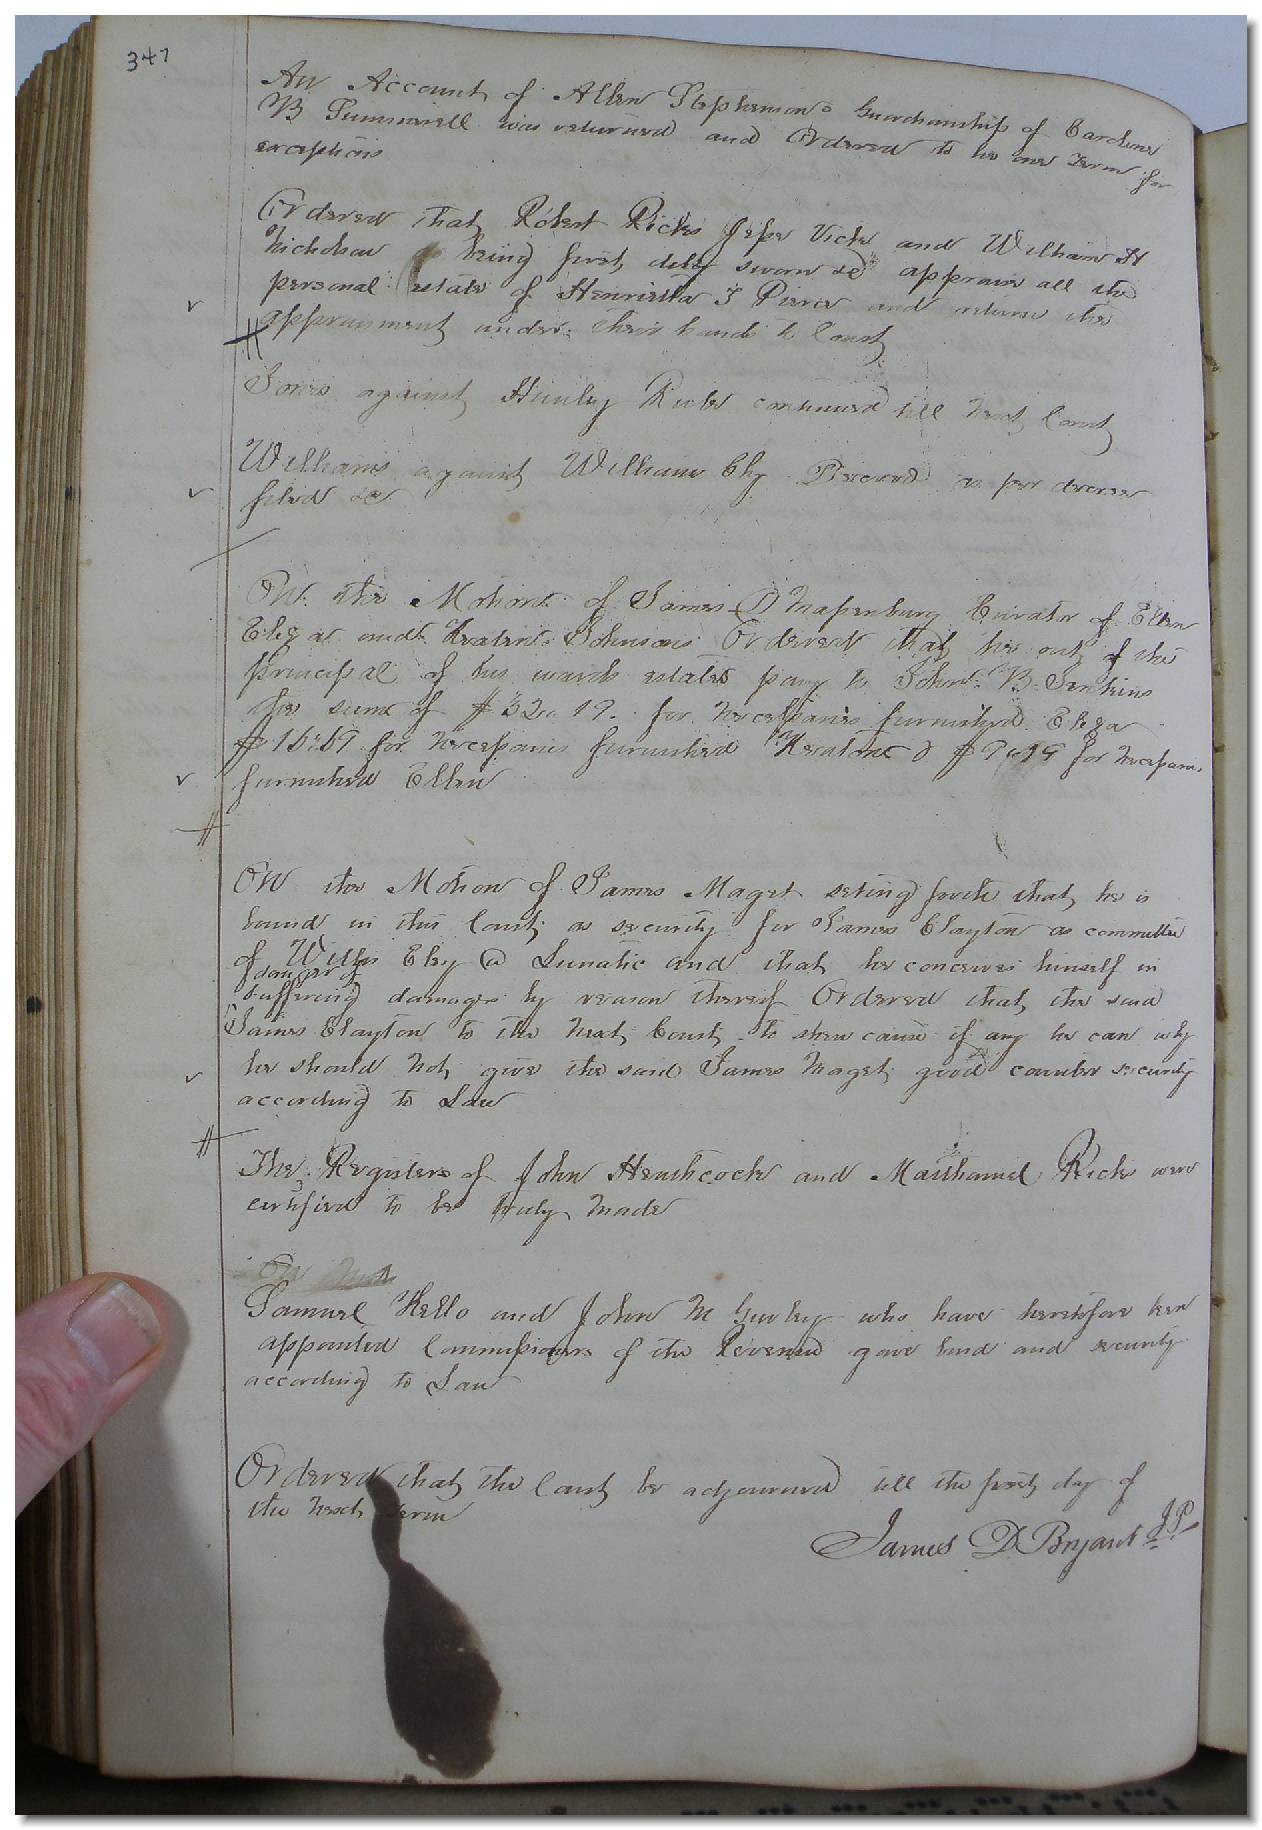 347
An Account of Allen Stephenson's Guardianship of Caroline
B Summerell was returned and Ordered to lie one Term for
exceptions
Ordered that Robert Ricks Jesse Vick and William H
Nicholson being first duly sworn &c appraise all the
personal estate of Henrietta Pierce and return the
appraisment under their hands to Court
Jones against Hunley Ricks continued till next Court
Williams against William Eley Decreed as per decree
filed &c
On the Motion of James D Massenburg Curator of Ellen
Eliza and Johnson Ordered that he out of the
principal of his wards estates pay to John B Jenkins
the sum of for necessaries furnished Eliza
for necessaries furnished & for necessaries
furnished Ellen
On the Motion of James Maget seting forth that he is
bound in this Court as security for James Clayton as committee
of Willis Eley a Lunatic and that he conceives himself in
danger of
suffering damages by reason thereof Ordered that the said
James Clayton to the next Court to shew cause if any he can why
he should not give the said James Maget good counter security
according to Law
The Registers of John Heathcock and Mathaniel Ricks were
certified to be truly made
On
Samuel Kello and John M Gurley who have heretofore been
appointed Commissioners of the Revenue gave bond and security
according to Law
Ordered that the Court be adjourned till the first day of
the next term
James D Bryant JP